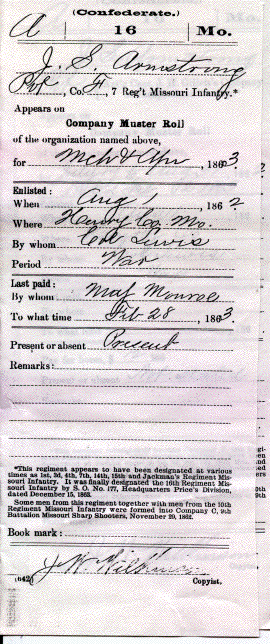 (Confederate.)
A 16 Mo.
J. S. Armstrong
Pvt, Co. F, 7 Reg't Missouri Infantry.*
Appears on
Company Muster Roll
of the organization named above,
for Mch & Apr, 1863.
Enlisted:
When Aug 1, 1862
Where Henry Co. Mo.
By whom Col Lewis
Period War
Last paid:
By whom Maj Monroe
To what time Feb 28, 1863.
Present or absent Present
Remarks:
*This regiment appears to have been designated at various
times as 1st, 3d, 4th, 7th, 14th, 15th and Jackman's Regiment Mis-
souri Infantry. It was finally designated the 16th Regiment Mis-
souri Infantry by S. O. No. 177, Headquarters Price's Division,
dated December 15, 1863.
Some men from this regiment together with men from the 10th
Regiment Missouri Infantry were formed into Company C, 9th
Battalion Missouri Sharp Shooters, November 29, 1862.
Book mark:
J. W.
(642) Copyist.